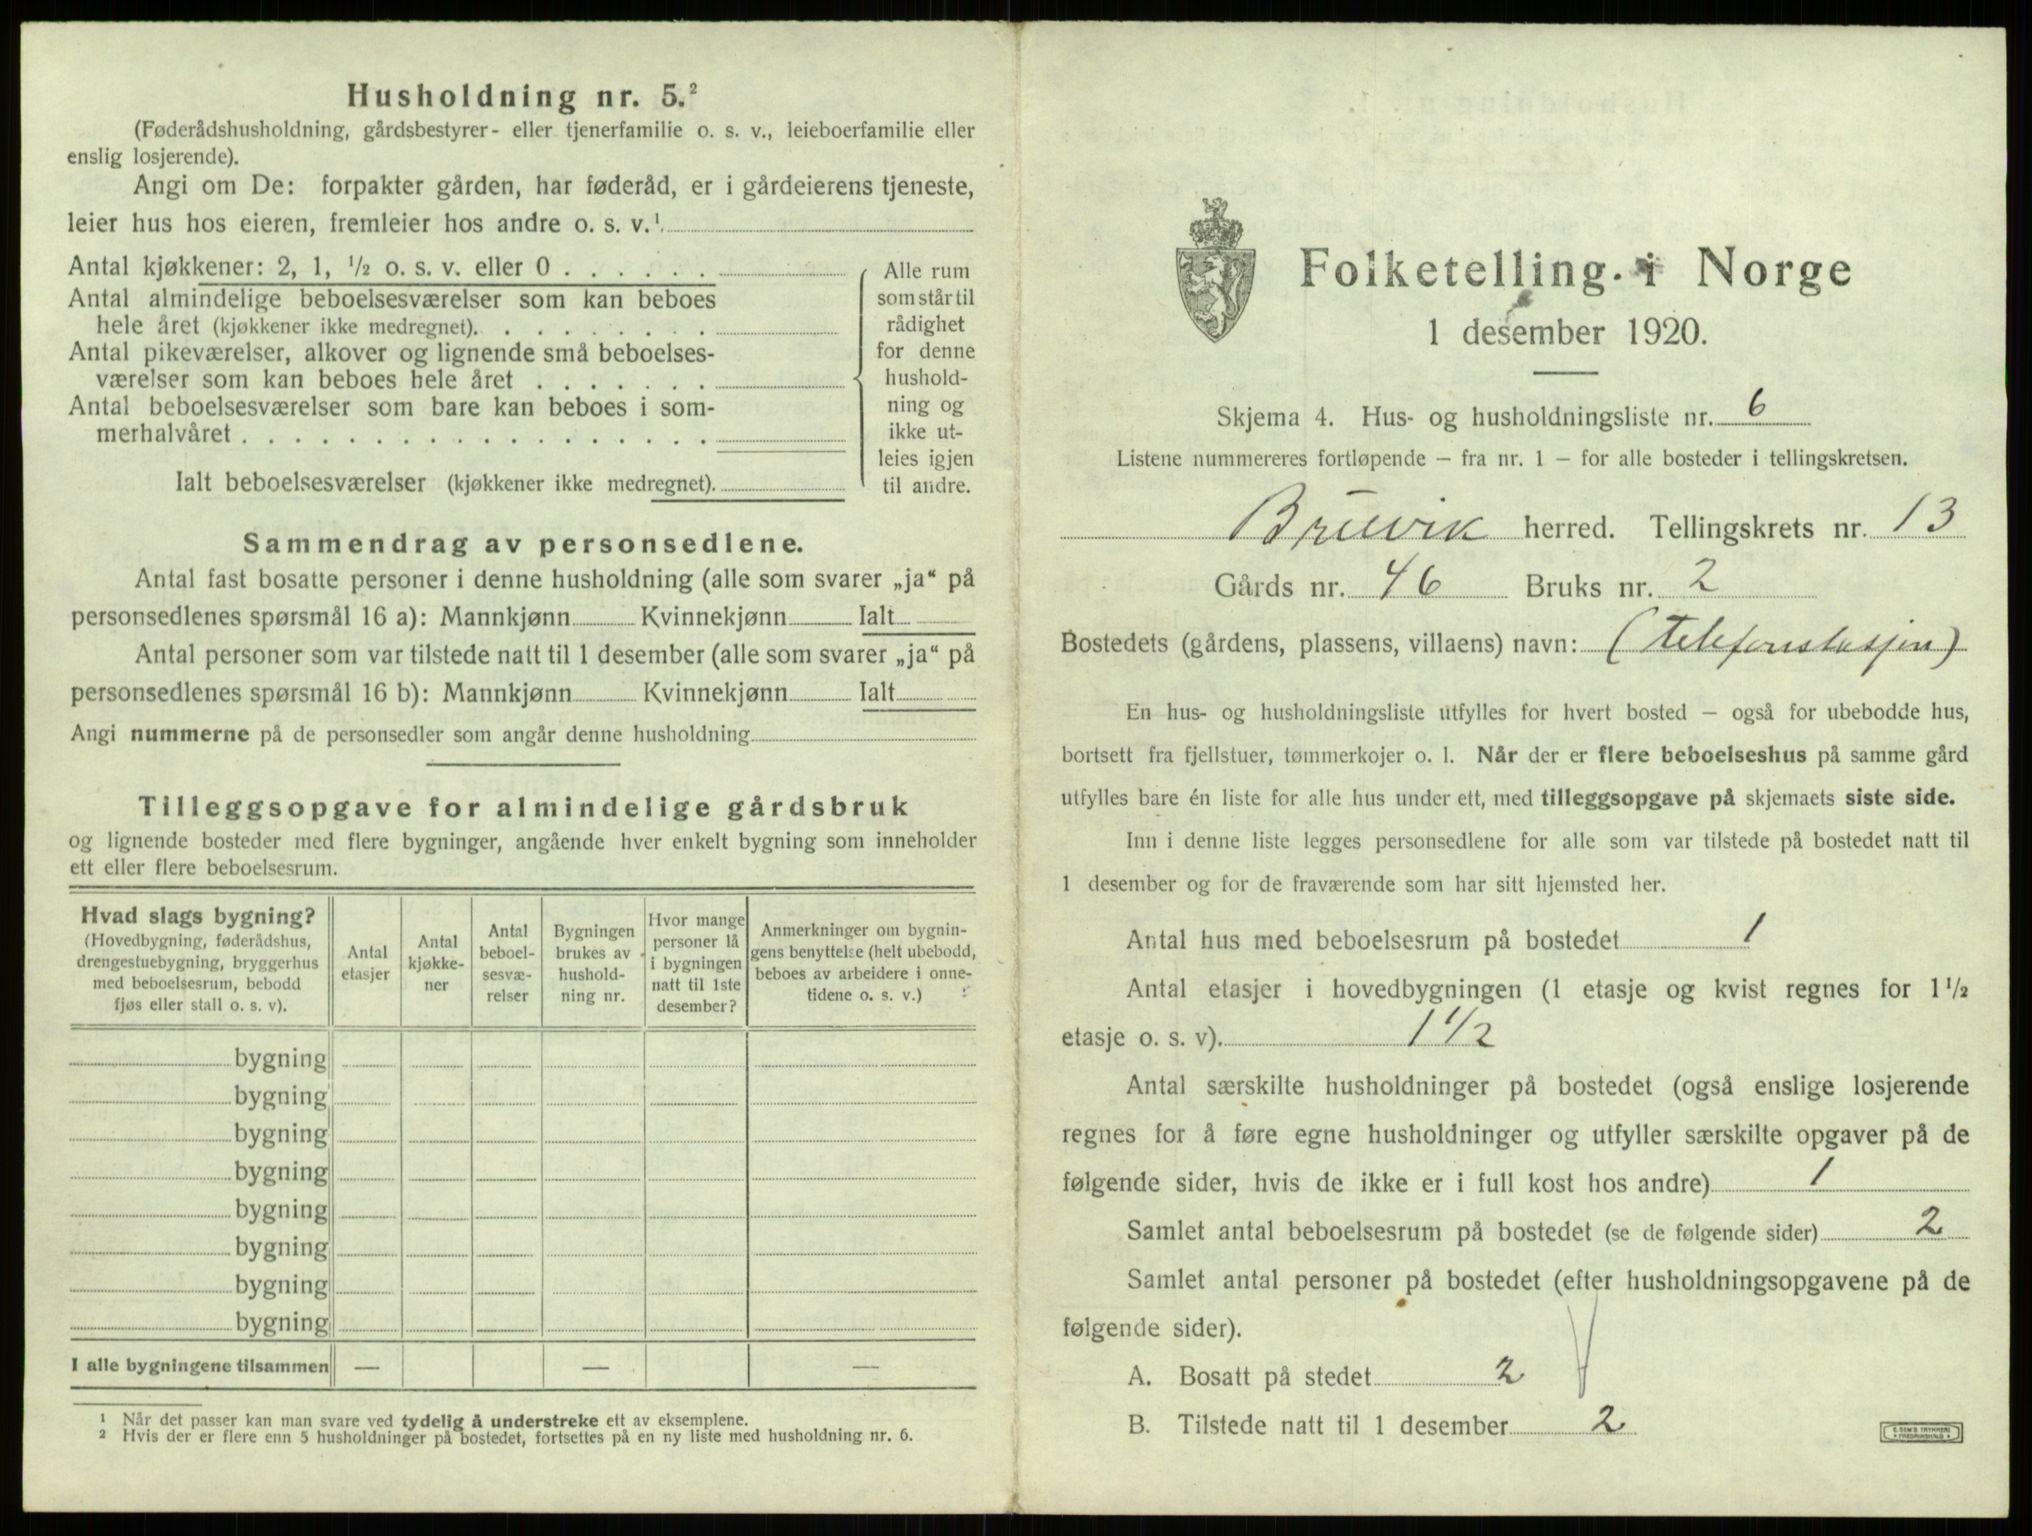 Husholdning nr. 5.²
(Føderådshusholdning, gårdsbestyrer- eller tjenerfamilie o. s. v., leieboerfamilie eller
enslig losjerende).
Angi om De: forpakter gården, har føderåd, er i gårdeierens tjeneste,
leier hus hos eieren, fremleier hos andre o. s. v.¹
Antal kjøkkener: 2, 1, ½ o. s. v. eller 0 . . . . . .
Antal almindelige beboelsesværelser som kan beboes
hele året (kjøkkener ikke medregnet). . . . . . . . .
Antal pikeværelser, alkover og lignende små beboelses-
værelser som kan beboes hele året . . . . . . .
Antal beboelsesværelser som bare kan beboes i som-
merhalvåret . . . . . . . . . . . . . . . . . .
Ialt beboelsesværelser (kjøkkener ikke medregnet).
Alle rum
som står til
rådighet
for denne
hushold-
ning og
ikke ut-
leies igjen
til andre.
Sammendrag av personsedlene.
Antal fast bosatte personer i denne husholdning (alle som svarer „ja“ på
personsedlenes spørsmål 16 a): Mannkjønn Kvinnekjønn Ialt
Antal personer som var tilstede natt til 1 desember (alle som svarer „ja“ på
personsedlenes spørsmål 16 b): Mannkjønn Kvinnekjønn Ialt
Angi nummerne på de personsedler som angår denne husholdning
Tilleggsopgave for almindelige gårdsbruk
og lignende bosteder med flere bygninger, angående hver enkelt bygning som inneholder
ett eller flere beboelsesrum.
Hvad slags bygning?
(Hovedbygning, føderådshus,
drengestuebygning, bryggerhus
med beboelsesrum, bebodd
fjøs eller stall o. s. v).
Antal
etasjer
Antal
kjøkke-
ner
Antal
beboel-
sesvæ-
relser
Bygningen
brukes av
hushold-
ning nr.
Hvor mange
personer lå
i bygningen
natt til 1ste
desember?
Anmerkninger om bygnin-
gens benyttelse (helt ubebodd,
beboes av arbeidere i onne-
tidene o. s. v.)
bygning
bygning
bygning
bygning
bygning
bygning
bygning
bygning
I alle bygningene tilsammen — — —
¹ Når det passer kan man svare ved tydelig å understreke ett av eksemplene.
² Hvis der er flere enn 5 husholdninger på bostedet, fortsettes på en ny liste med husholdning nr. 6.
Folketelling i Norge
1 desember 1920.
Skjema 4. Hus- og husholdningsliste nr. 6
Listene nummereres fortløpende — fra nr. 1 — for alle bosteder i tellingskretsen.
Bruvik herred. Tellingskrets nr. 13
Gårds nr. 46 Bruks nr. 2
Bostedets (gårdens, plassens, villaens) navn: (telefonstasjon)
En hus- og husholdningsliste utfylles for hvert bosted — også for ubebodde hus,
bortsett fra fjellstuer, tømmerkojer o. l. Når der er flere beboelseshus på samme gård
utfylles bare én liste for alle hus under ett, med tilleggsopgave på skjemaets siste side.
Inn i denne liste legges personsedlene for alle som var tilstede på bostedet natt til
1 desember og for de fraværende som har sitt hjemsted her.
Antal hus med beboelsesrum på bostedet 1
Antal etasjer i hovedbygningen (1 etasje og kvist regnes for 1½
etasje o. s. v). 1½
Antal særskilte husholdninger på bostedet (også enslige losjerende
regnes for å føre egne husholdninger og utfyller særskilte opgaver på de
følgende sider, hvis de ikke er i full kost hos andre) 1
Samlet antal beboelsesrum på bostedet (se de følgende sider) 2
Samlet antal personer på bostedet (efter husholdningsopgavene på de
følgende sider).
A. Bosatt på stedet 2
B. Tilstede natt til 1 desember 2
E. SEM'S TRYKKERI
FREDRIKSHALD